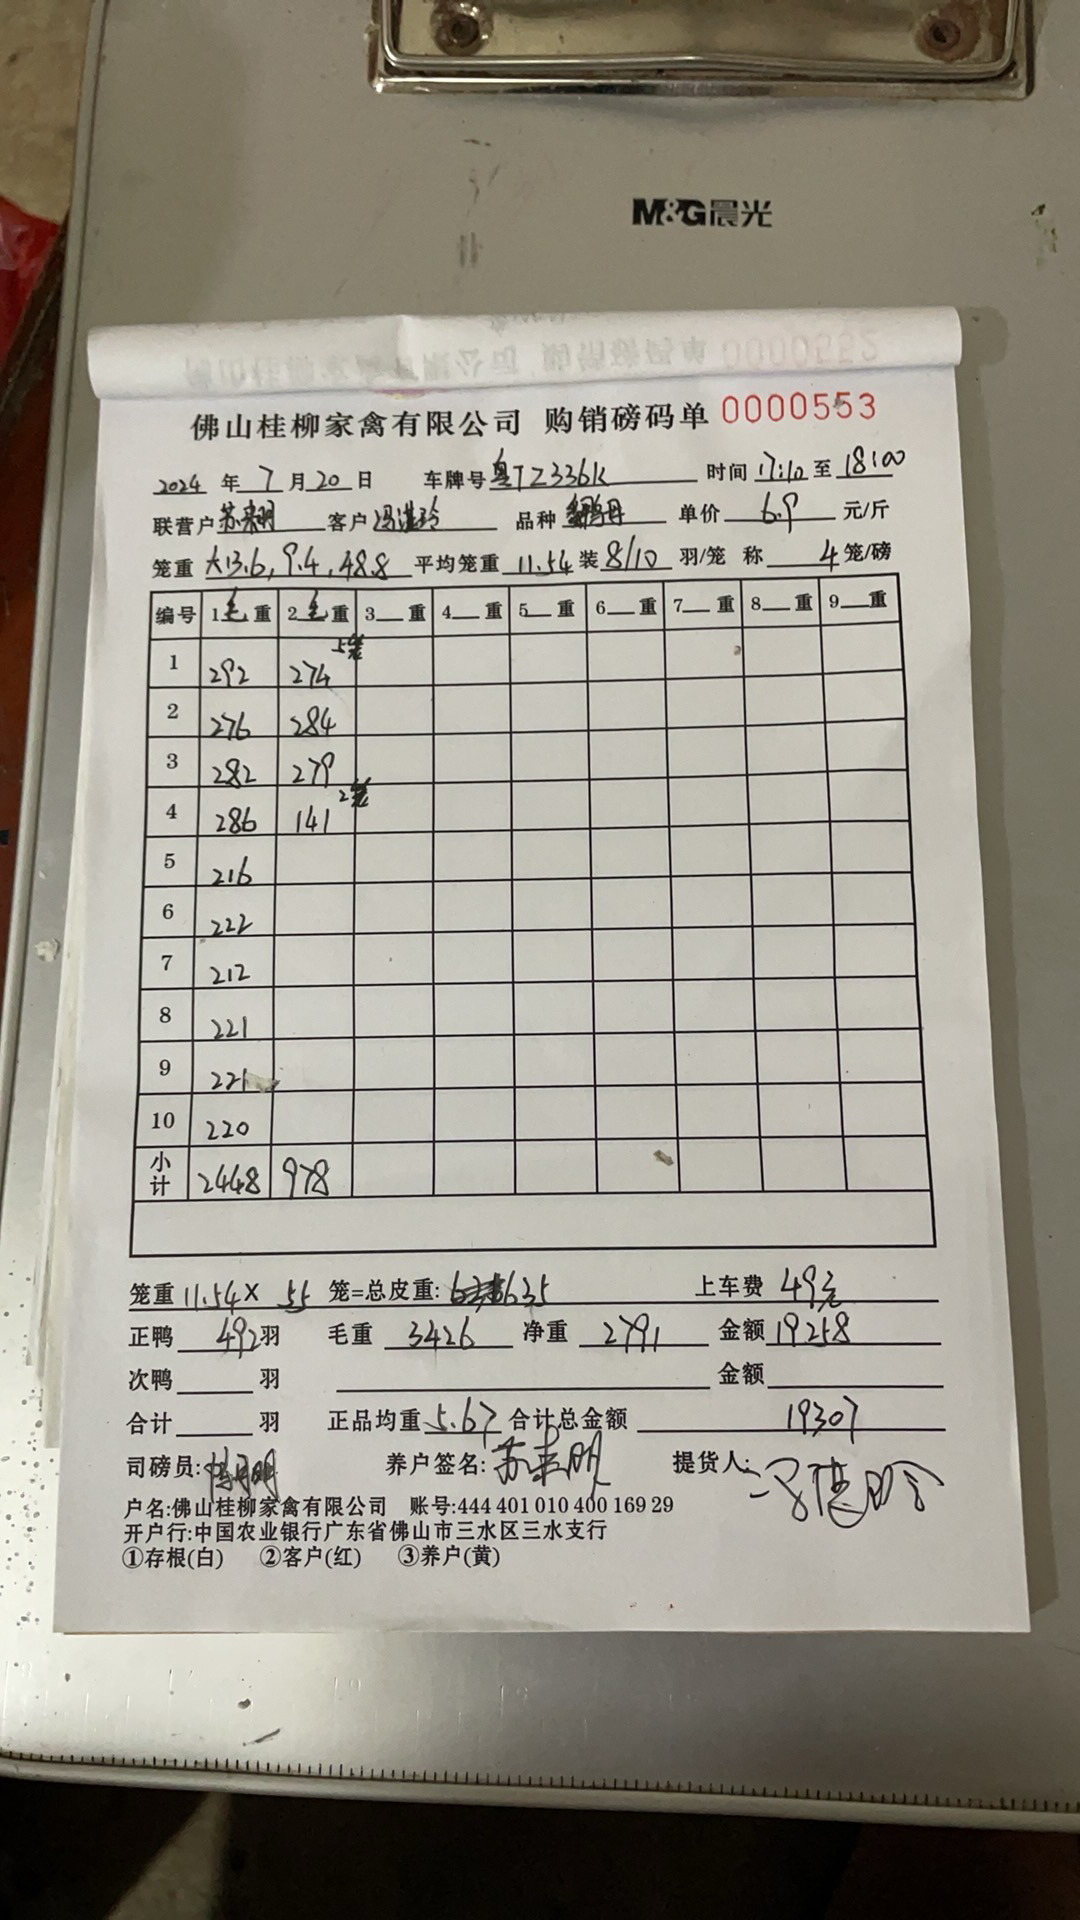 M&G晨光
0000552
佛山桂柳家禽有限公司 购销磅码单 0000553
2024 年 7 月 20 日 车牌号 粤TZ336K 时间 17:10 至 18:00
联营户 苏来明 客户 冯湛玲 品种 单价 6.9 元/斤
笼重 大13.6, 9.4, 48.8 平均笼重 11.54 装 8/10 羽/笼 称 4 笼/磅
编号 1 毛 重 2 毛 重 3 重 4 重 5 重 6 重 7 重 8 重 9 重
5笼
1 292 274
2 276 284
3 282 279
2笼
4 286 141
5 216
6 222
7 212
8 221
9 221
10 220
小计 2448 978
笼重 11.54 × 55 笼=总皮重: 635 上车费 49元
正鸭 492 羽 毛重 3426 净重 2791 金额 19258
次鸭 羽 金额
合计 羽 正品均重 5.67 合计总金额 19307
司磅员: 养户签名: 苏来明 提货人:
户名:佛山桂柳家禽有限公司 账号:444 401 010 400 169 29
开户行:中国农业银行广东省佛山市三水区三水支行
①存根(白) ②客户(红) ③养户(黄)